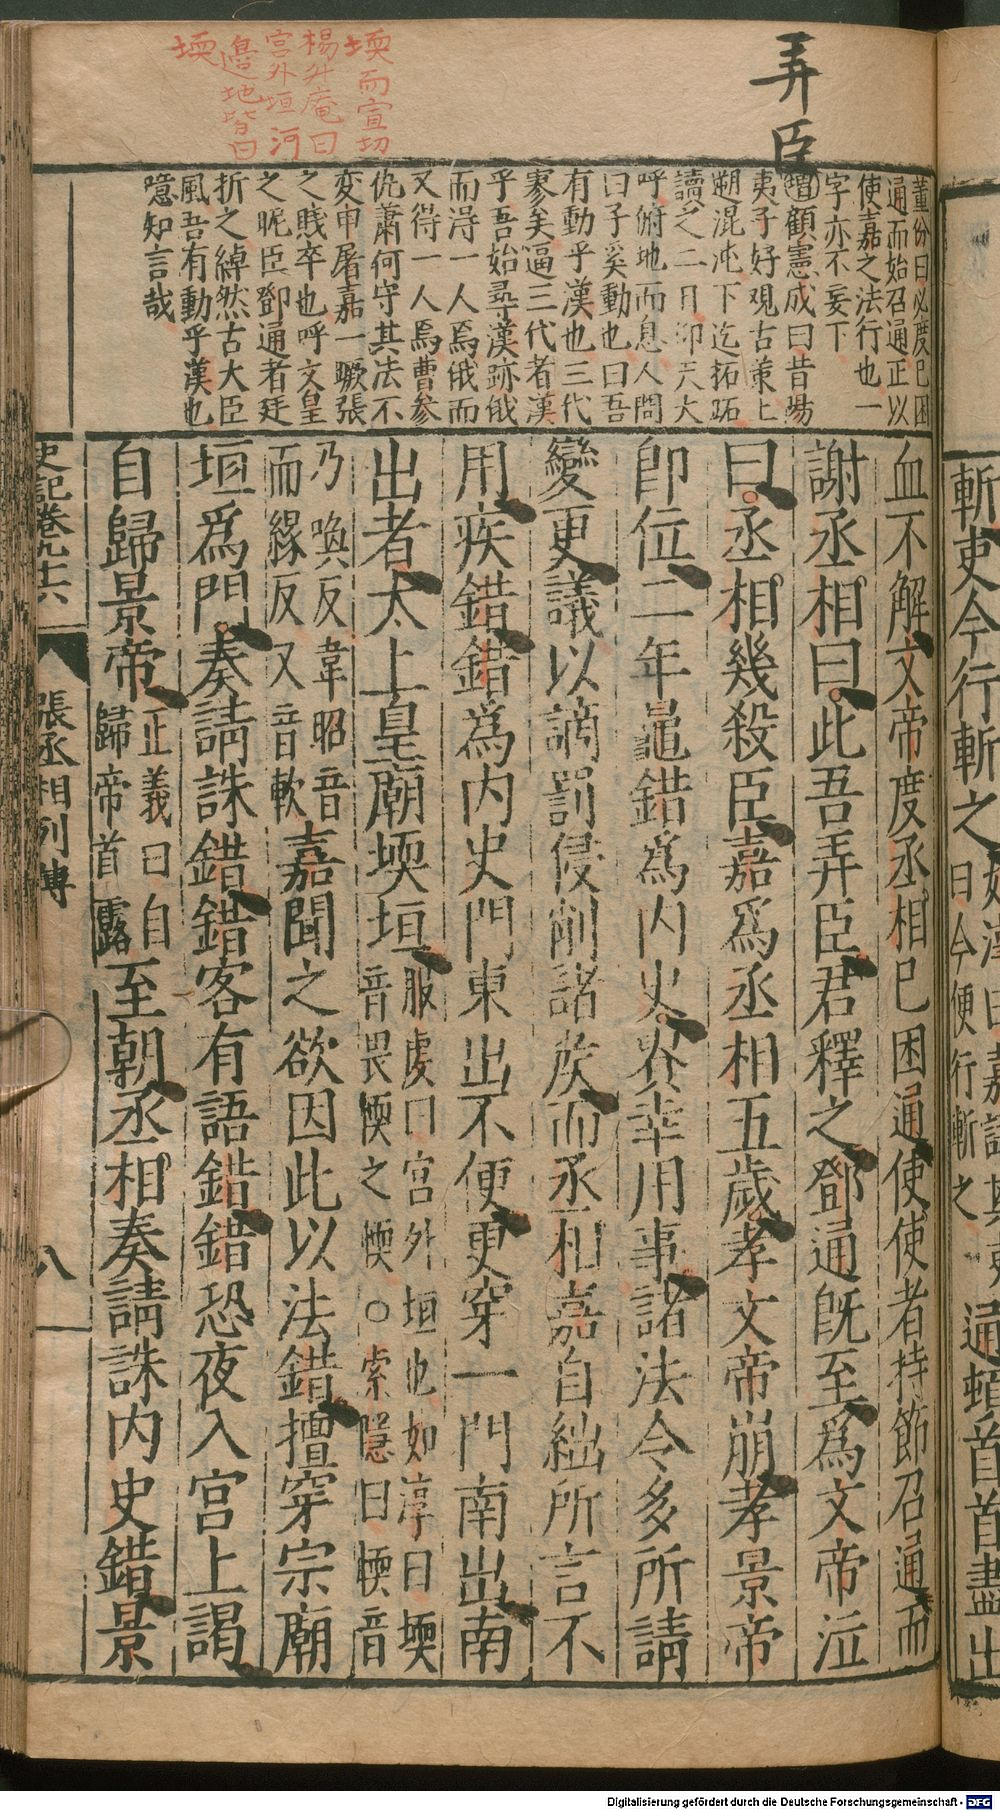 弄臣
堧而宣切
楊升庵曰
宮外垣河
邊地皆曰
堧
董份曰必度已困
通而始召通正以
使嘉之法行也一
字亦不妄下
增顧憲成曰昔場
夷子好觀古策上
遡混沌下迄拓跖
讀之二日仰天大
呼俯地而息人問
曰子奚動也曰吾
有動乎漢也三代
寥矣逼三代者漢
乎吾始尋漢跡俄
而淂一人焉俄而
又得一人焉曹參
仇蕭何守其法不
变申屠嘉一蹶張
之賤卒也呼文皇
之昵臣鄧通者廷
折之綽然古大臣
風吾有動乎漢也
噫知言哉
血不解文帝度丞相已困通使使者持節召通而
謝丞相曰此吾弄臣君釋之鄧通既至為文帝泣
曰丞相幾殺臣嘉爲丞相五歲孝文帝崩孝景帝
即位二年鼂錯爲內史貴幸用事諸法令多所請
變更議以謫罰侵削諸矦而丞相嘉自絀所言不
用疾錯錯爲內史門東出不便更穿一門南出南
出者太上皇廟堧垣服虔曰宮外垣也如淳曰堧音畏愞之愞○索隱曰愞音
乃喚反韋昭音而緣反又音軟嘉聞之欲因此以法錯擅穿宗廟
垣爲門奏請誅錯錯客有語錯錯恐夜入宮上謁
自歸景帝正義曰自歸帝首露至朝丞相奏請誅內史錯景
史記卷九十六
張丞相列傳
八
斬吏今行斬之
曰今便行斬之
通頓首首盡出
Digitalisierung gefördert durch die Deutsche Forschungsgemeinschaft - DFG